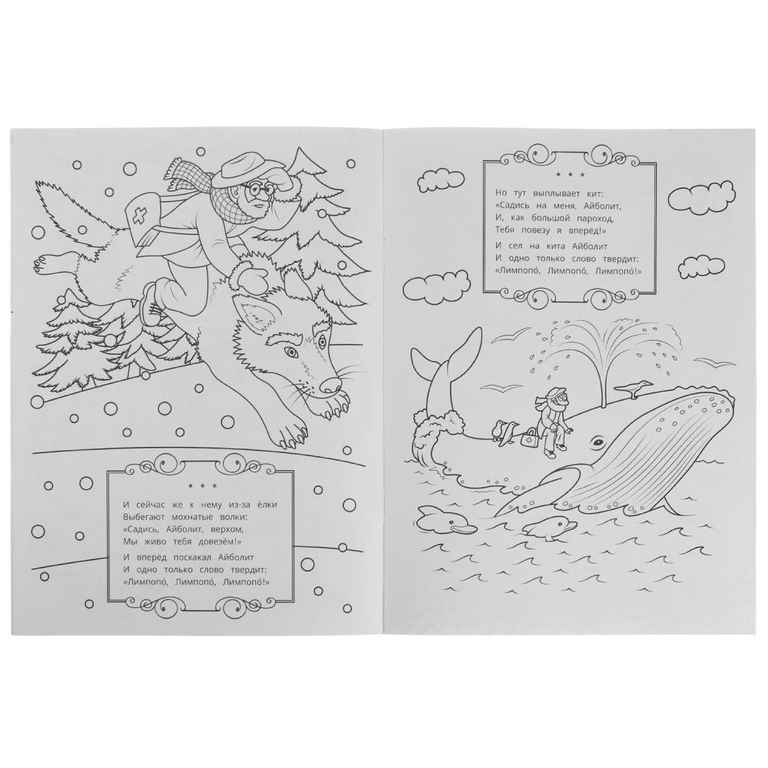 * * *
И сейчас же к нему из-за ёлки
Выбегают мохнатые волки:
«Садись, Айболит, верхом,
Мы живо тебя довезём!»
И вперёд поскакал Айболит
И одно только слово твердит:
«Лимпопо́, Лимпопо́, Лимпопо́!»
* * *
Но тут выплывает кит:
«Садись на меня, Айболит,
И, как большой пароход,
Тебя повезу я вперёд!»
И сел на кита Айболит
И одно только слово твердит:
«Лимпопо́, Лимпопо́, Лимпопо́!»